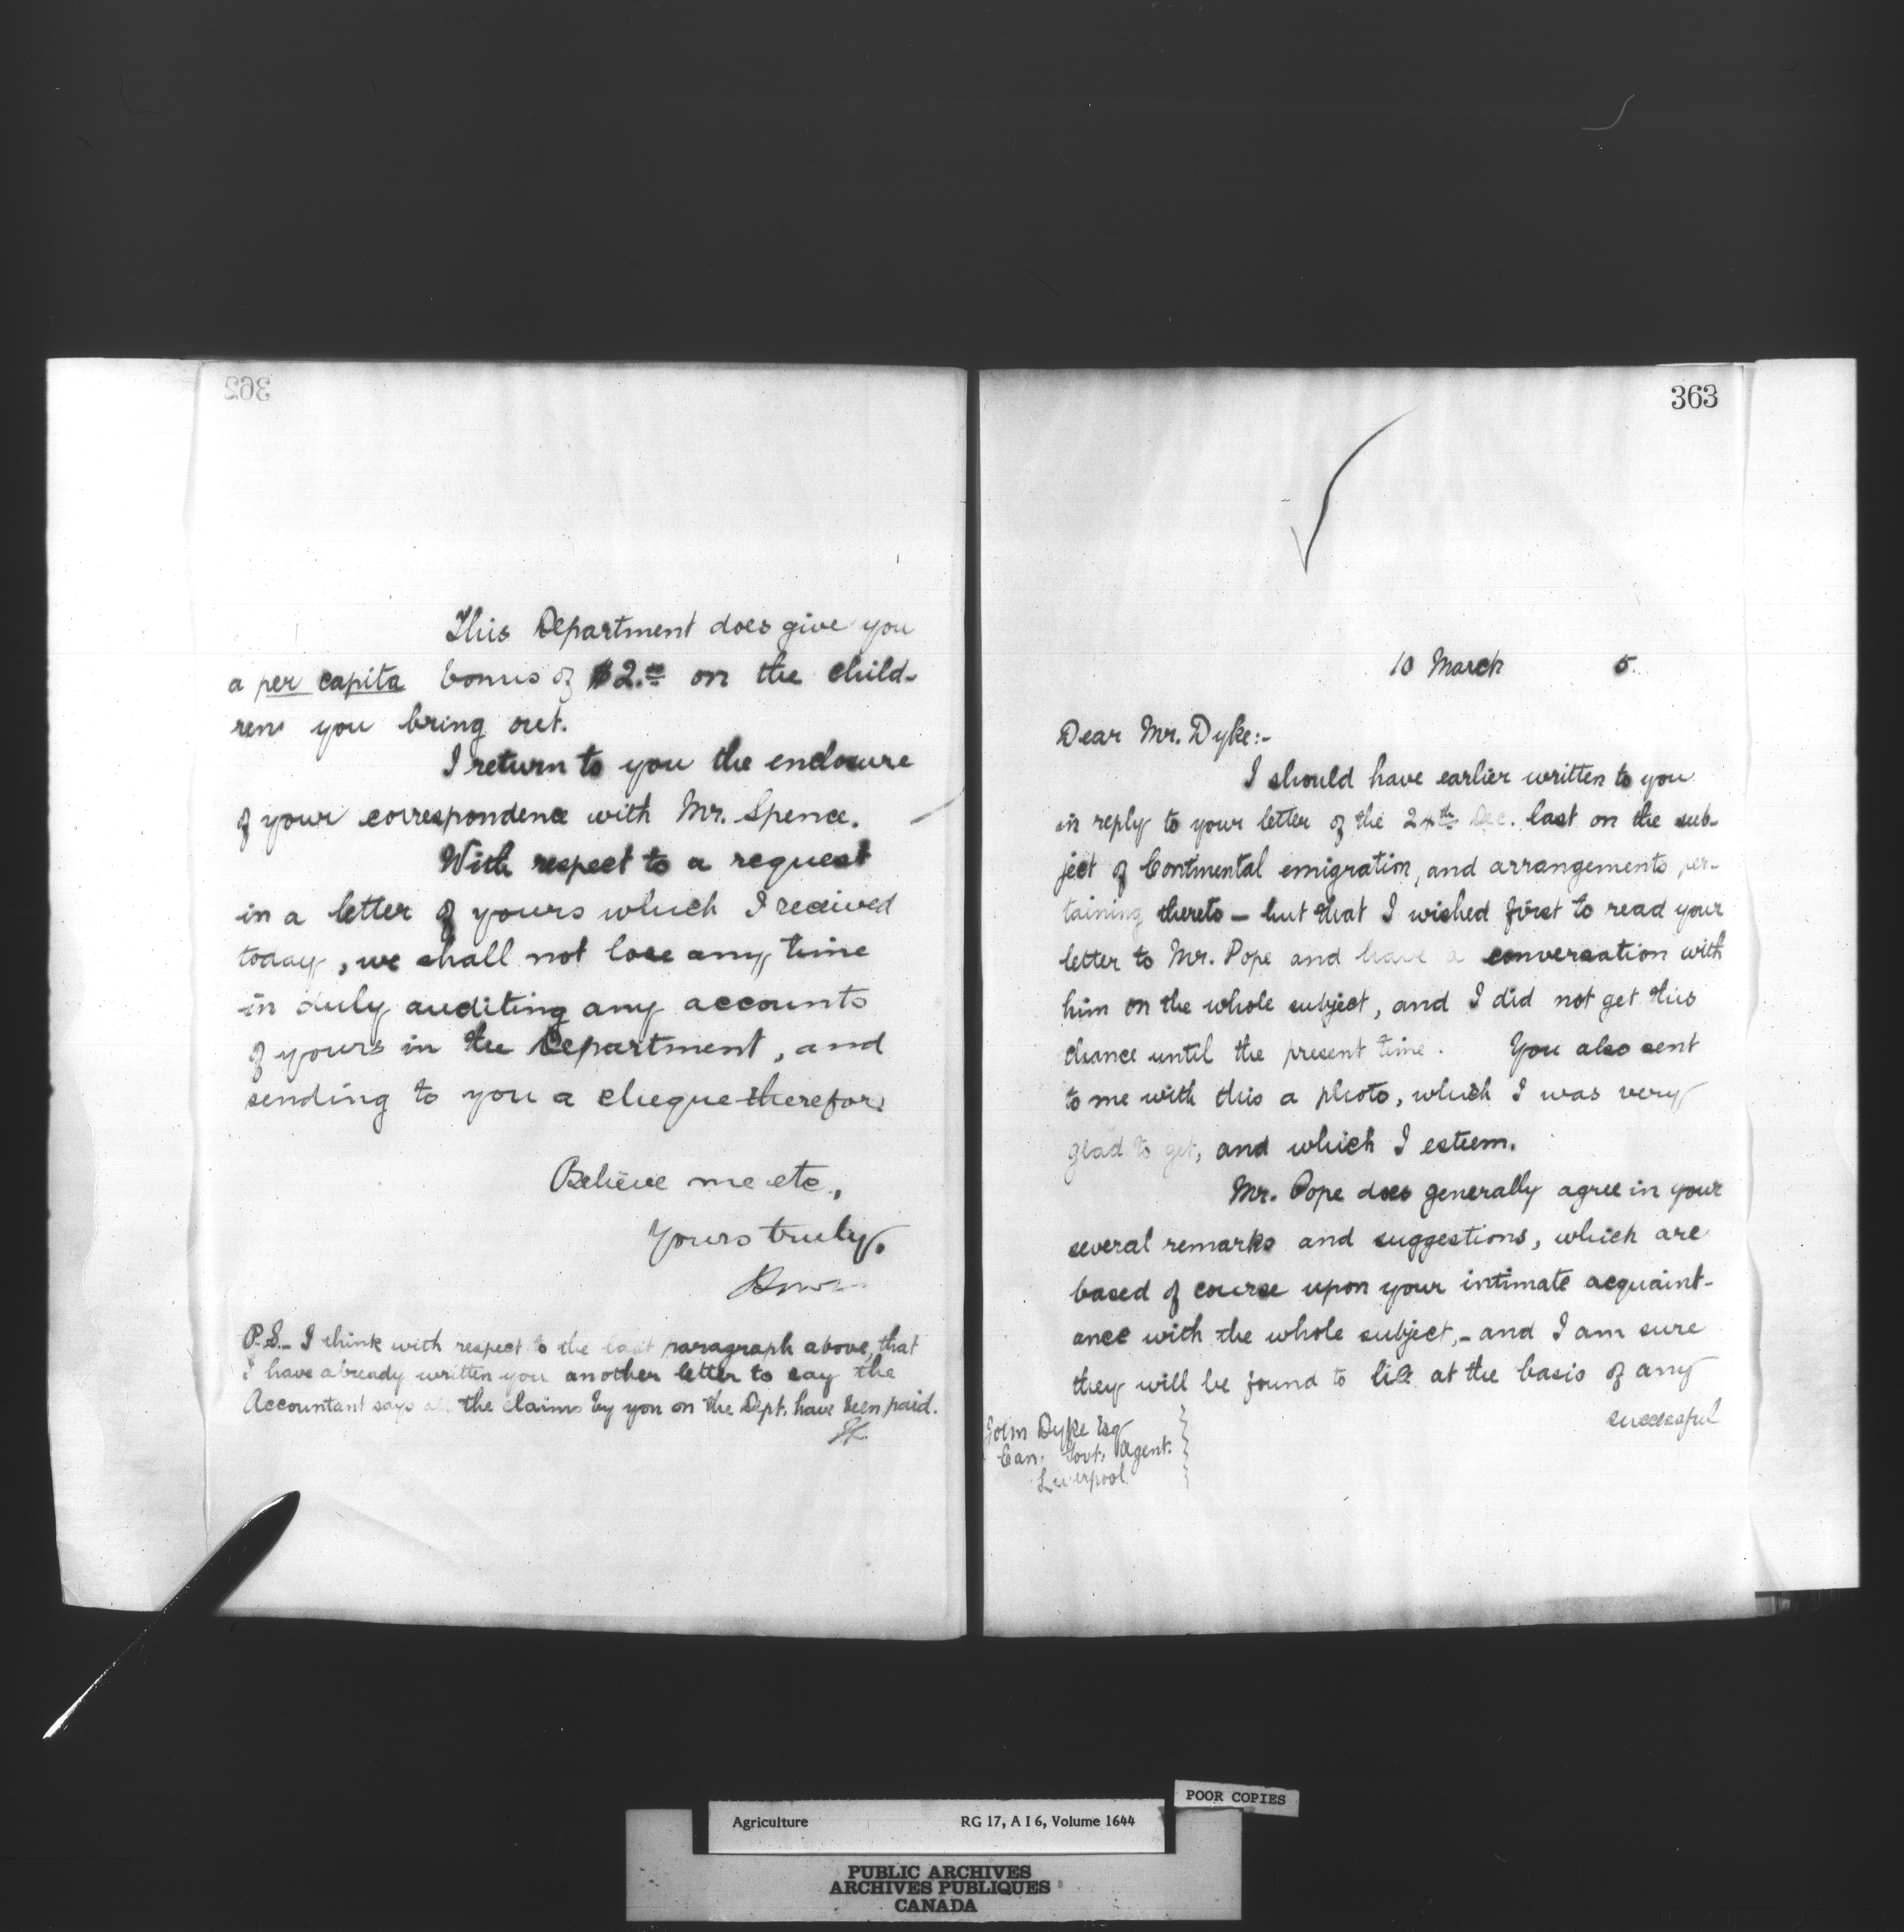 This Department does give you
a per capita bonus of $2.00 on the child-
ren you bring out.
I return to you the enclosure
of your correspondence with Mr. Spence.
With respect to a request
in a letter of yours which I received
today, we shall not lose any time
in duly auditing any accounts
of yours in the Department, and
sending to you a cheque therefor.
Believe me etc,
Yours truly,
P.S.- I think with respect to the last paragraph above, that
I have already written you another letter to say the
Accountant says all the claims by you on the Dept. have been paid.
363
10 March 5.
Dear Mr. Dyke:-
I should have earlier written to you
in reply to your letter of the 24th Dec. last on the sub-
ject of Continental emigration, and arrangements per-
taining thereto - but that I wished first to read your
letter to Mr. Pope and have a conversation with
him on the whole subject, and I did not get this
chance until the present time. You also sent
to me with this a photo, which I was very
glad to get, and which I esteem.
Mr. Pope does generally agree in your
several remarks and suggestions, which are
based of course upon your intimate acquaint-
ance with the whole subject,- and I am sure
they will be found to lie at the basis of any
successful
John Dyke Esq
Can. Govt. Agent.
Liverpool
POOR COPIES
Agriculture RG 17, A I 6, Volume 1644
PUBLIC ARCHIVES
ARCHIVES PUBLIQUES
CANADA